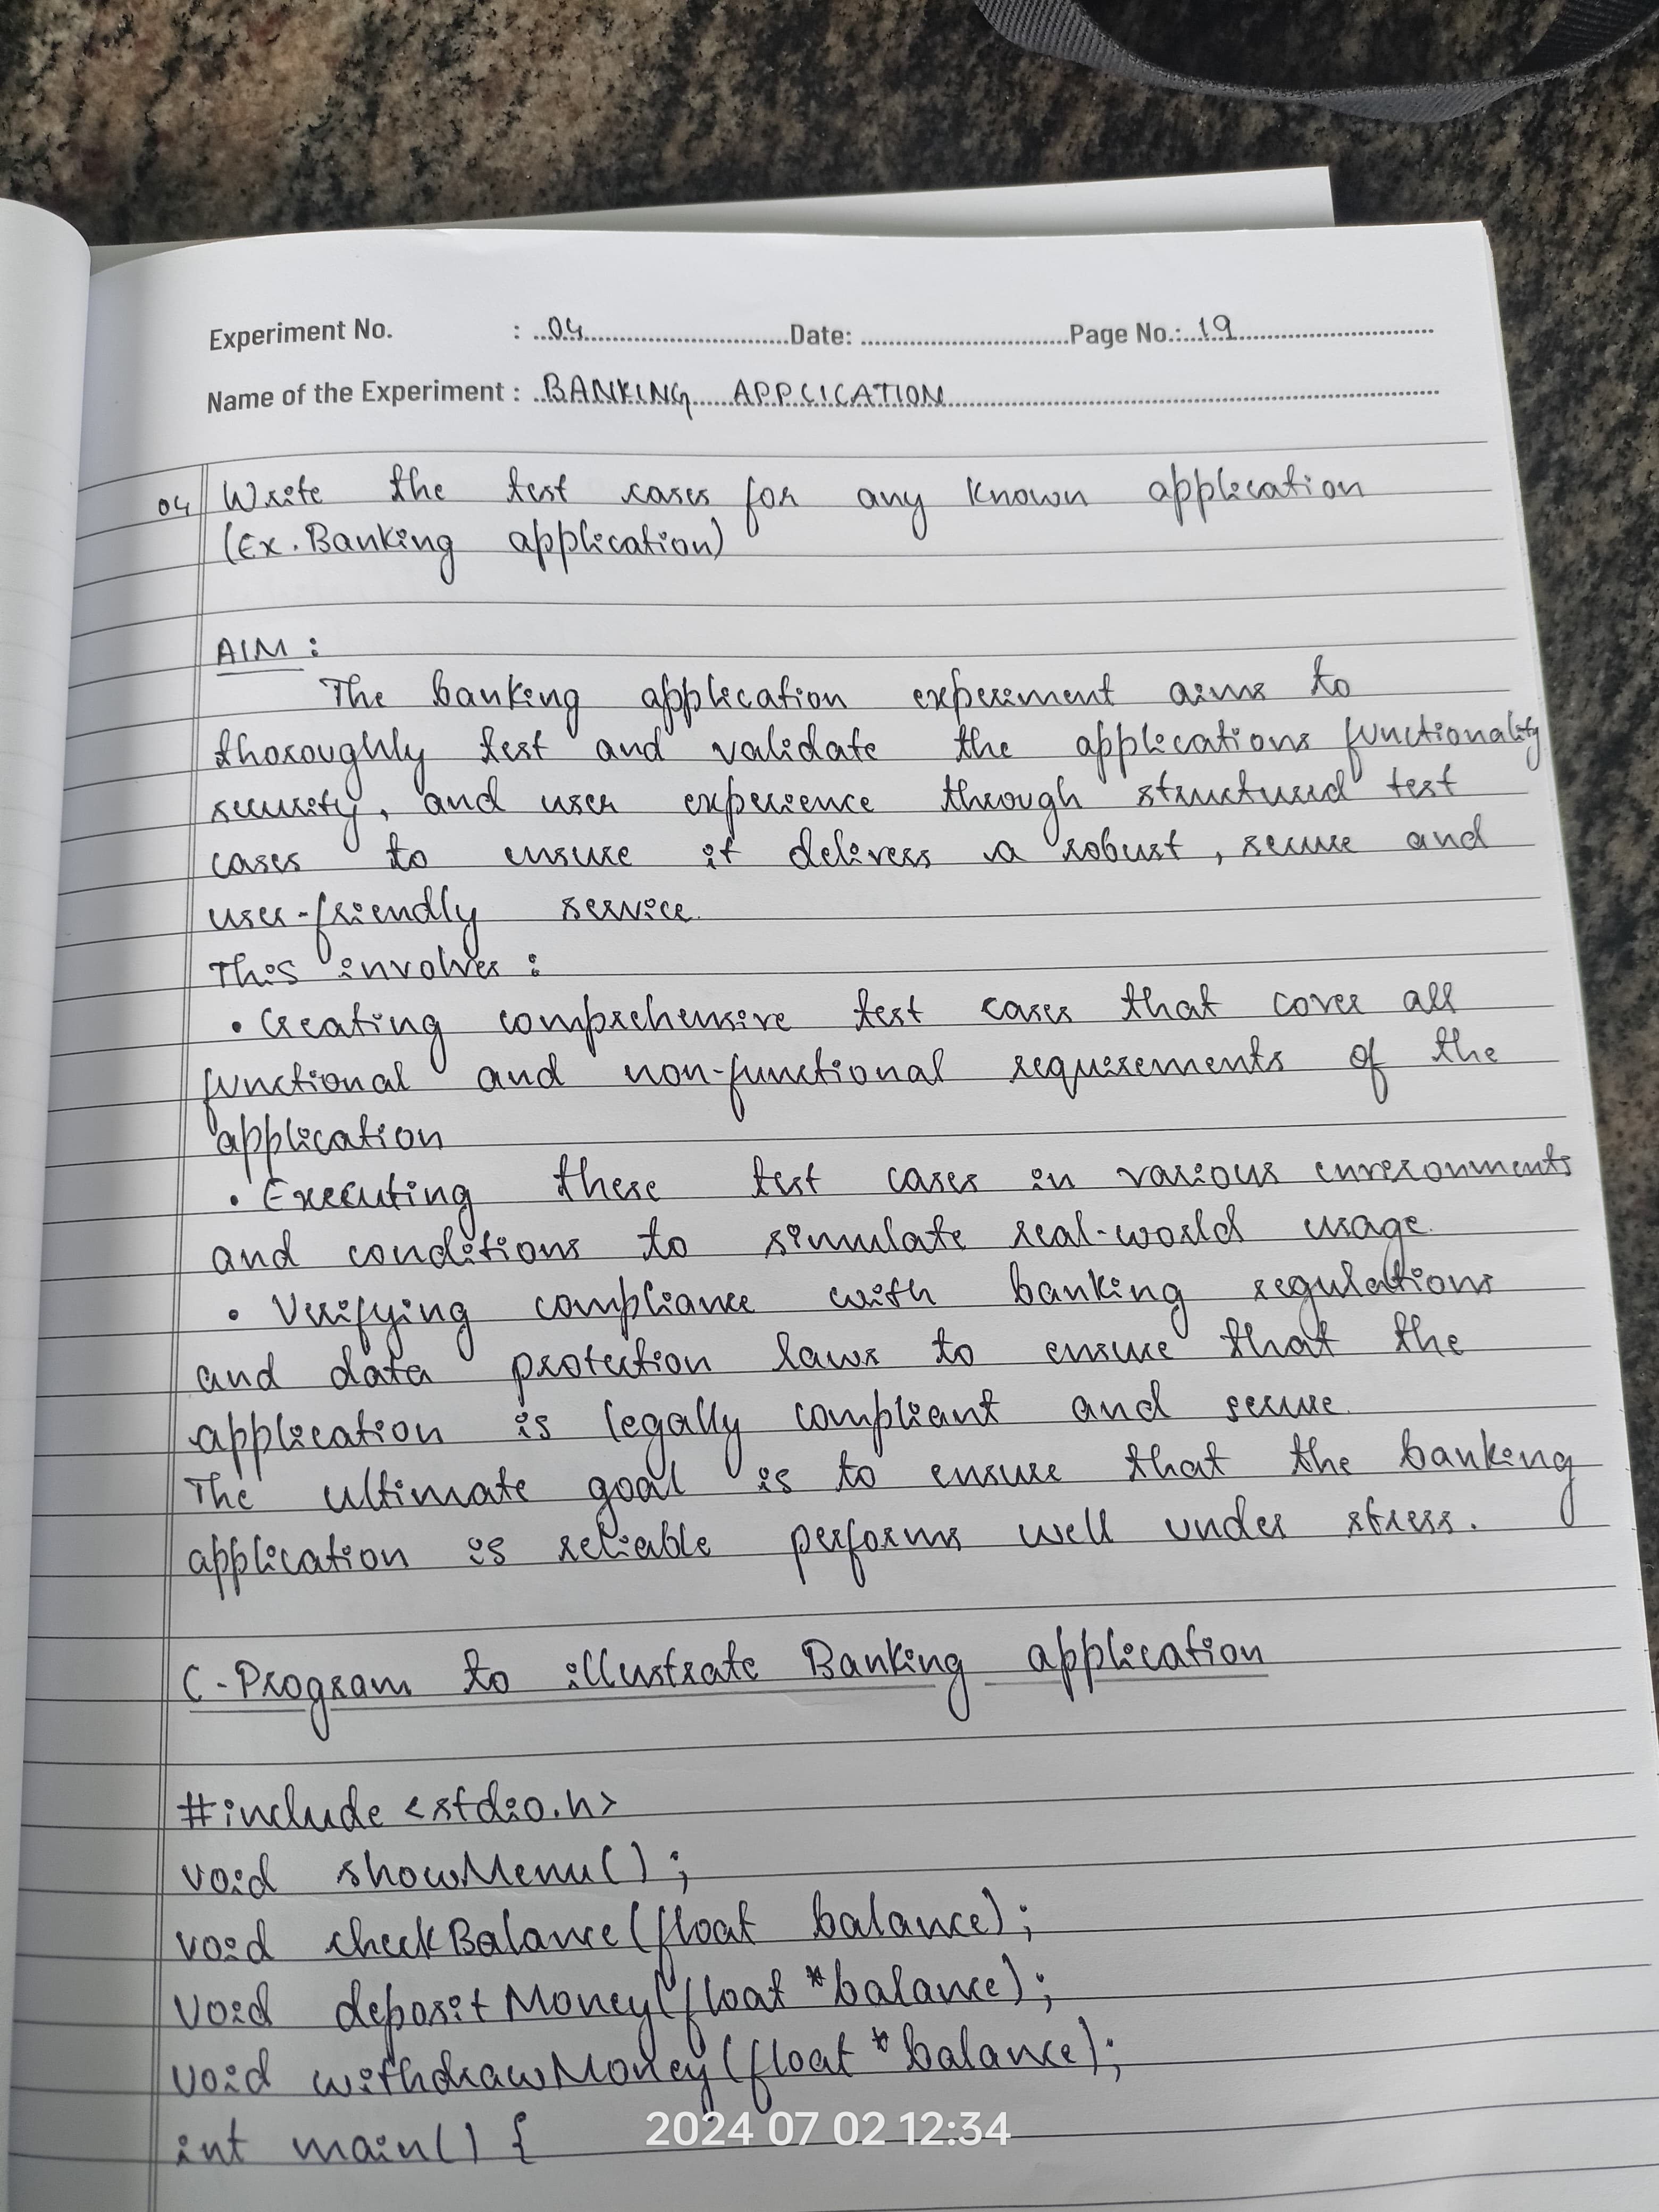 Experiment No. : 04 Date: Page No.: 19
Name of the Experiment : BANKING APPLICATION
04 Write the test cases for any known application
(Ex. Banking application)
AIM :
The banking application experiment aims to
thoroughly test and validate the applications functionality
security, and user experience through structured test
cases to ensure it delivers a robust, secure and
user-friendly service.
This involves :
• Creating comprehensive test cases that cover all
functional and non-functional requirements of the
application
• Executing these test cases in various environments
and conditions to simulate real-world usage.
• Verifying compliance with banking regulations
and data protection laws to ensure that the
application is legally compliant and secure.
The ultimate goal is to ensure that the banking
application is reliable performs well under stress.
C-Program to illustrate Banking application
#include <stdio.h>
void showMenu() ;
void checkBalance(float balance);
void depositMoney(float *balance);
void withdrawMoney(float *balance);
int main() {
2024 07 02 12:34